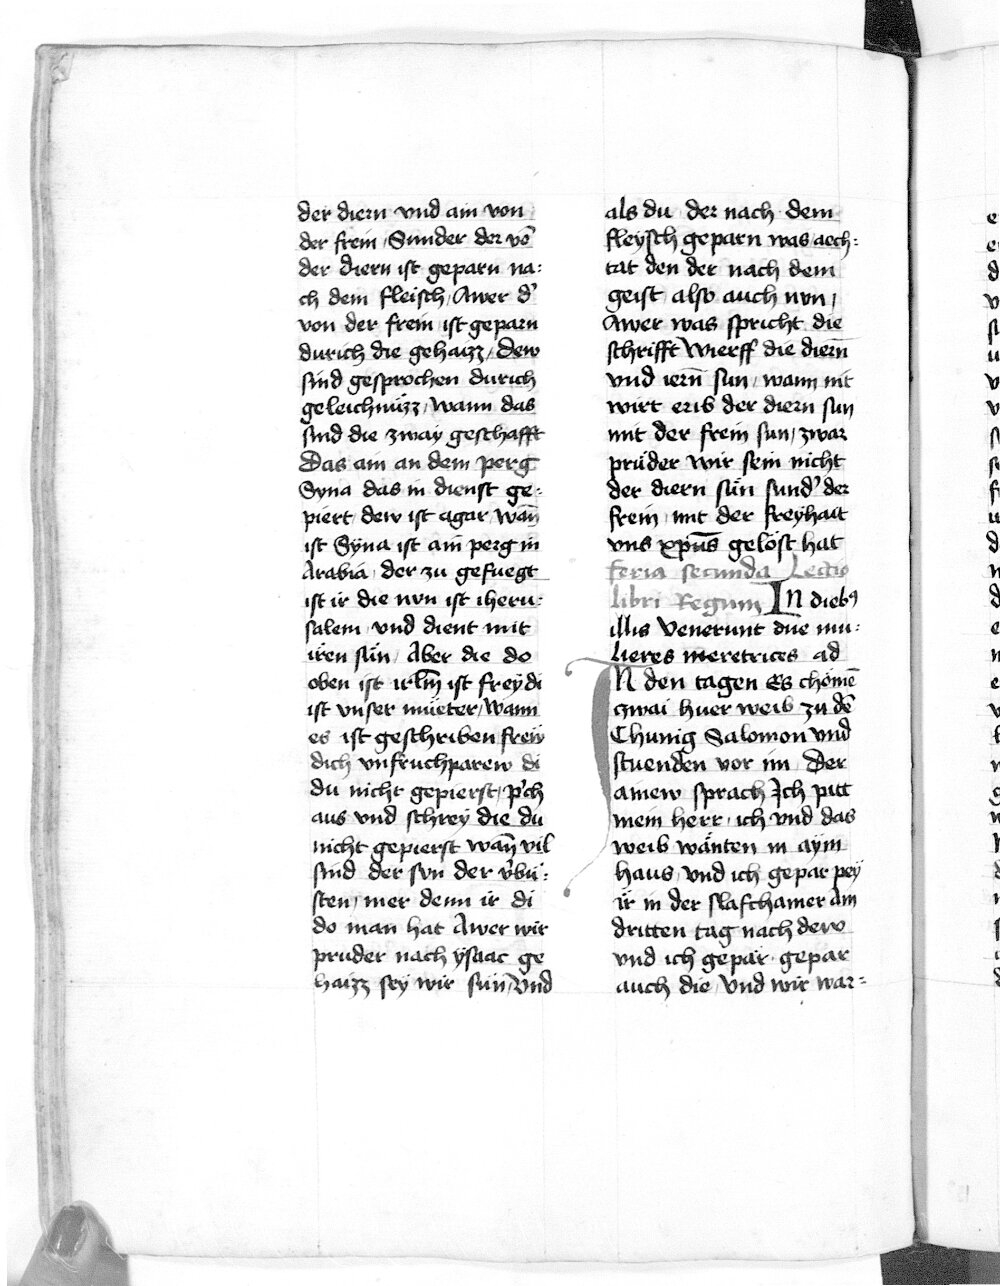 der diern vnd ain von
der frein / Sunder der vō
der diern ist geparn na:
ch dem fleisch / Awer d'
von der frein ist geparn
durich die gehaizz / dew
sind gesprochen durich
geleichnüzz / wann das
sind die zway geschafft
Das ain an dem perg
Syna das in dienst ge:
piert / dew ist agar / wañ
ist Syna ist ain perg in
Arabia / der zu gefuegt
ist ir die nvn ist iheru:
salem / vnd dient mit
iren sün / Aber die do
oben ist irlm̄ ist frey di
ist vnser müeter / wann
es ist geschriben frew
dich vnfruchparew di
du nicht gepierst / p'ch
aus vnd schrey die du
nicht gepierst wañ vil
sind der svn der v'bü:
sten / mer denn ir di
do man hat Awer wir
prüder nach ysaac ge
haizz sey wir sün / Vnd
als du der nach dem
fleysch geparn was aech:
tät den der nach dem
geist / also auch nvn /
Awer was spricht die
schrifft Wierff die diern̄
vnd iern̄ sun / wann nit
wirt erib der diern sun
mit der frein sun / zwar
prüder wir sein nicht
der diern sün sund' der
frein / mit der freyhait
vns xp̄us gelöst hat
feria secunda Lectio
libri Regum IN dieb9
illis Venerunt due mu:
lieres meretrices ad
IN den tagen Es chömē
zwai huer weib zu dē
Chunig Salomon vnd
stuenden vor im / Der
ainew sprach Ich pitt
mein herr / ich vnd das
weib wänten in aým
haus / vnd ich gepar pey
ir in der slafchamer Am
dritten tag nach dew
vnd ich gepär / gepar
auch die / Vnd wir war: